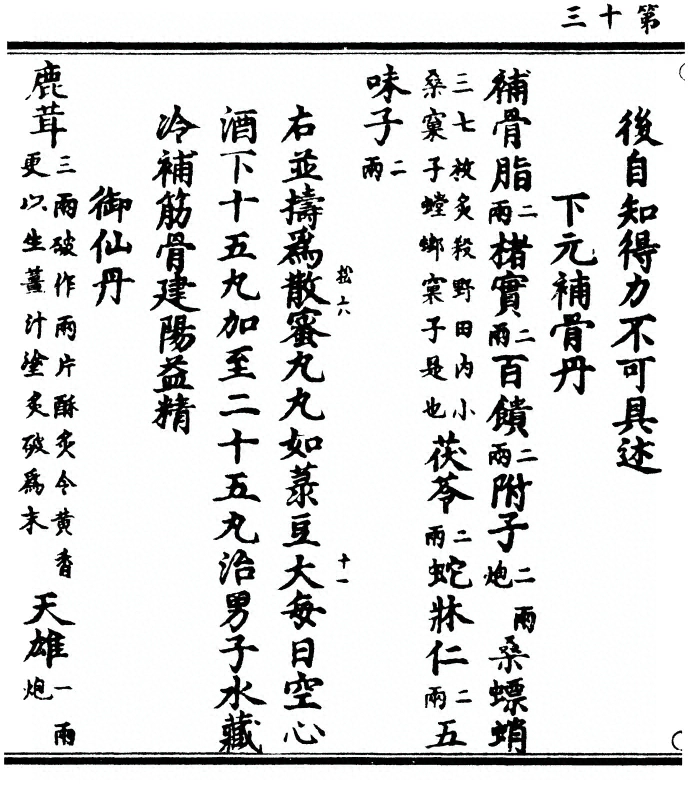 第十三
後自知得力不可具述
下元補骨丹
補骨脂二兩楮實二兩百饋二兩附子二兩炮桑螵蛸
三七枚炙殺野田內小桑窠子螳螂窠子是也茯苓二兩蛇牀仁二兩五
味子二兩
松六
十一
右並擣爲散蜜丸丸如菉豆大每日空心
酒下十五丸加至二十五丸治男子水藏
冷補筋骨建陽益精
御仙丹
鹿茸三兩破作兩片酥炙令黄香更以生薑汁塗炙破爲末天雄一兩炮